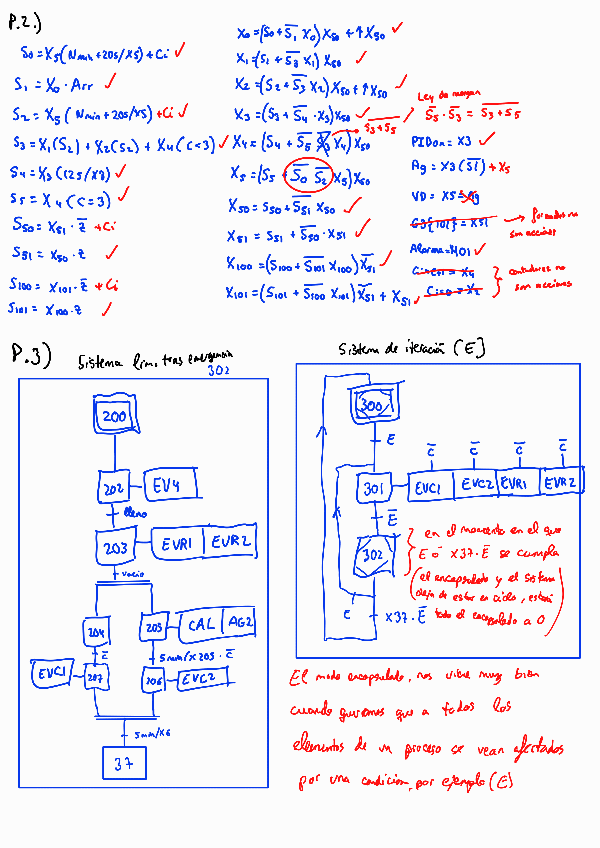 P.2.)
S0 = X5 (Nmin + 20s/X5) + Ci ✓
S1 = X0 · Arr ✓
S2 = X5 (Nmin + 20s/X5) + Ci ✓
S3 = X1(S2) + X2(S2) + X4(C<3) ✓
S4 = X3 (12s/X3) ✓
S5 = X4 (C=3) ✓
S50 = X51 · Z̅ + Ci
S51 = X50 · Z ✓
S100 = X101 · Z̅ + Ci
S101 = X100 · Z ✓
X0 = (S0 + S̅1̅ X0) X50 + ↑X50 ✓
X1 = (S1 + S̅3̅ X1) X50 ✓
X2 = (S2 + S̅3̅ X2) X50 + ↑X50 ✓
X3 = (S3 + S̅4̅ · X3) X50 ✓
X4 = (S4 + S̅5̅ S̅3̅ X4) X50
S̅3̅+̅S̅5̅
X5 = (S5 + S̅0̅ S̅2̅ X5) X50
X50 = S50 + S̅5̅1̅ X50 ✓
X51 = S51 + S̅5̅0̅ · X51 ✓
X100 = (S100 + S̅1̅0̅1̅ X100) X̅5̅1̅ ✓
X101 = (S101 + S̅1̅0̅0̅ X101) X̅5̅1̅ + X51 ✓
Ley de morgan
S̅5̅ · S̅3̅ = S̅3̅+̅S̅5̅
PIDon = X3 ✓
Ag = X3 (S̅1̅) + X5
VD = X5 = Ag
G3{101} = X51 → forzados no son acciones
Alarma = 101 ✓
= X4
= X2
contadores no son acciones
P.3)
Sistema limitens emergencia
302
200
202 EV4
lleno
203 EVR1 EVR2
vacio
204
205 CAL AG2
c̅
5min/X205 · c̅
EVC1 207
206 EVC2
5min/X6
37
Sistema de iteración (E]
300
E
c̅ c̅ c̅ c̅
301 EVC1 EVC2 EVR1 EVR2
E̅
302
E
X37 · E̅
en el momento en el que
E o X37 · E̅ se cumpla
(el encapsulado y el sistema
deja de estar en ciclo, estará
todo el encapsulado a 0)
El modo encapsulado, nos viene muy bien
cuando queremos que a todos los
elementos de un proceso se vean afectados
por una condicion, por ejemplo (E)